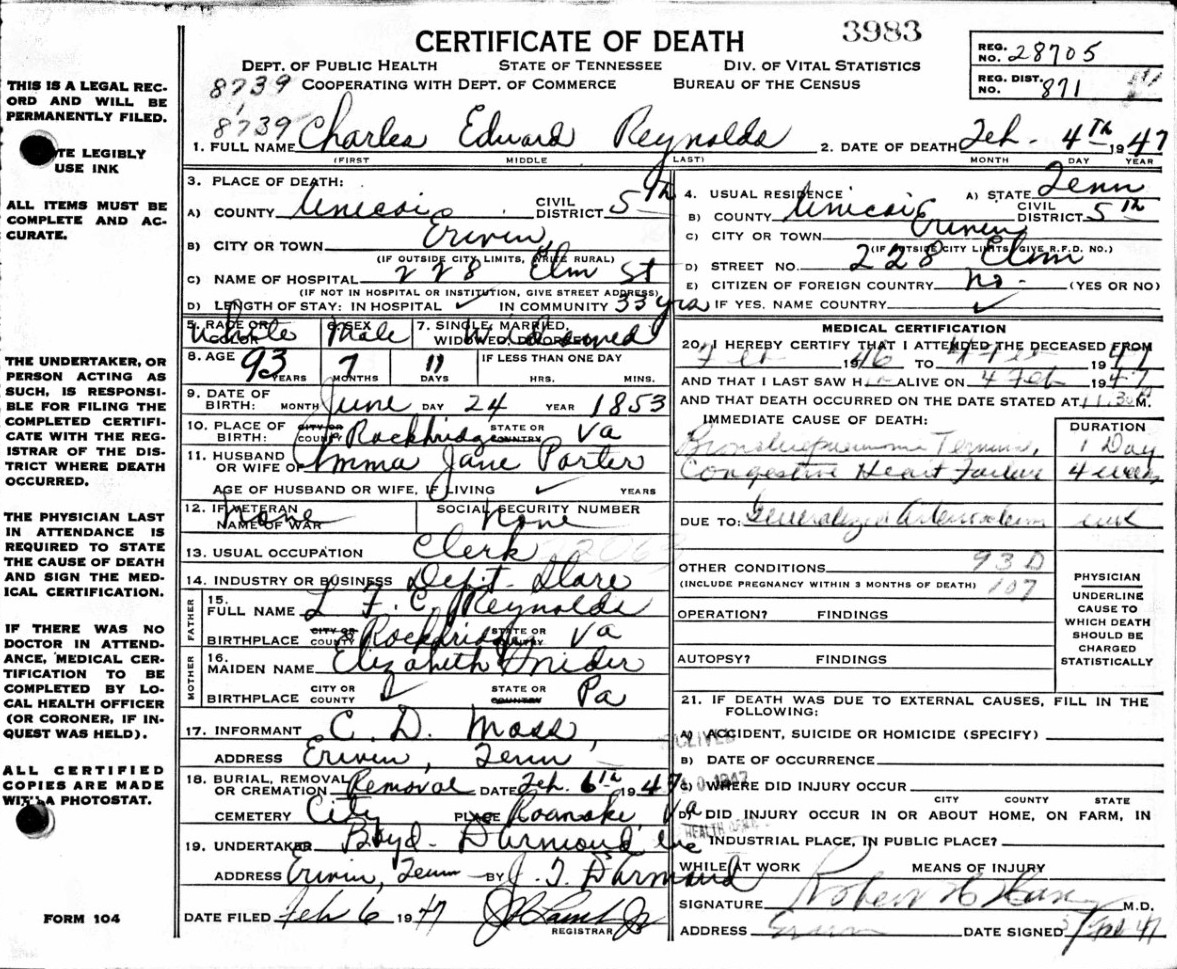 3983
CERTIFICATE OF DEATH
REG. NO. 28705
DEPT. OF PUBLIC HEALTH STATE OF TENNESSEE DIV. OF VITAL STATISTICS
8739 COOPERATING WITH DEPT. OF COMMERCE BUREAU OF THE CENSUS
REG. DIST. NO. 871
8739
1. FULL NAME Charles Edward Reynolds 2. DATE OF DEATH Feb. 4TH 1947
(FIRST) MIDDLE LAST) MONTH DAY YEAR
THIS IS A LEGAL RECORD AND WILL BE PERMANENTLY FILED.
TE LEGIBLY
USE INK
ALL ITEMS MUST BE
COMPLETE AND ACCURATE.
THE UNDERTAKER, OR
PERSON ACTING AS
SUCH, IS RESPONSIBLE FOR FILING THE
COMPLETED CERTIFICATE WITH THE REGISTRAR OF THE DISTRICT WHERE DEATH
OCCURRED.
THE PHYSICIAN LAST
IN ATTENDANCE IS
REQUIRED TO STATE
THE CAUSE OF DEATH
AND SIGN THE MEDICAL CERTIFICATION.
IF THERE WAS NO
DOCTOR IN ATTENDANCE, MEDICAL CERTIFICATION TO BE
COMPLETED BY LOCAL HEALTH OFFICER
(OR CORONER, IF INQUEST WAS HELD).
ALL CERTIFIED
COPIES ARE MADE
WITH A PHOTOSTAT.
FORM 104
3. PLACE OF DEATH:
A) COUNTY Unicoi CIVIL DISTRICT 5th
B) CITY OR TOWN Erwin
(IF OUTSIDE CITY LIMITS, WRITE RURAL)
C) NAME OF HOSPITAL 228 Elm St
(IF NOT IN HOSPITAL OR INSTITUTION, GIVE STREET ADDRESS)
D) LENGTH OF STAY: IN HOSPITAL ✓ IN COMMUNITY 33 yrs
4. USUAL RESIDENCE A) STATE Tenn
B) COUNTY Unicoi CIVIL DISTRICT 5th
C) CITY OR TOWN Erwin
(IF OUTSIDE CITY LIMITS, GIVE R.F.D. NO.)
D) STREET NO. 228 Elm
E) CITIZEN OF FOREIGN COUNTRY no - (YES OR NO)
IF YES, NAME COUNTRY ✓
5. RACE OR COLOR White 6. SEX Male 7. SINGLE, MARRIED, WIDOWED, DIVORCED Widowed
8. AGE 93 YEARS 7 MONTHS 11 DAYS IF LESS THAN ONE DAY HRS. MINS.
9. DATE OF BIRTH: MONTH June DAY 24 YEAR 1853
10. PLACE OF BIRTH: CITY OR COUNTY Rockbridge STATE OR COUNTRY Va
11. HUSBAND OR WIFE OF Emma Jane Porter
AGE OF HUSBAND OR WIFE, IF LIVING ✓ YEARS
12. IF VETERAN NAME OF WAR None SOCIAL SECURITY NUMBER None
13. USUAL OCCUPATION Clerk
14. INDUSTRY OR BUSINESS Dept. Store
FATHER
15. FULL NAME L F. C. Reynolds
BIRTHPLACE CITY OR COUNTY Rockbridge STATE OR COUNTRY Va
MOTHER
16. MAIDEN NAME Elizabeth Snider
BIRTHPLACE CITY OR COUNTY ✓ STATE OR COUNTRY Pa
17. INFORMANT C. D. Moss,
ADDRESS Erwin, Tenn
18. BURIAL, REMOVAL OR CREMATION Removal DATE Feb. 6th 1947
CEMETERY City PLACE Roanoke, Va
19. UNDERTAKER Boyd-DArmond Inc
ADDRESS Erwin, Tenn BY J. T. DArmond
DATE FILED Feb 6 1947 REGISTRAR
MEDICAL CERTIFICATION
20. I HEREBY CERTIFY THAT I ATTENDED THE DECEASED FROM
Feb 1946 TO 4 Feb 1947
AND THAT I LAST SAW HIM ALIVE ON 4 Feb 1947
AND THAT DEATH OCCURRED ON THE DATE STATED AT 11.30 M.
IMMEDIATE CAUSE OF DEATH: DURATION
Bronchopneumonia Terminal, 1 Day
Congestive Heart Failure 4 weeks
DUE TO: Generalized Arteriosclerosis
OTHER CONDITIONS 93 D
(INCLUDE PREGNANCY WITHIN 3 MONTHS OF DEATH) 107
OPERATION? FINDINGS
AUTOPSY? FINDINGS
PHYSICIAN
UNDERLINE
CAUSE TO
WHICH DEATH
SHOULD BE
CHARGED
STATISTICALLY
21. IF DEATH WAS DUE TO EXTERNAL CAUSES, FILL IN THE FOLLOWING:
A) ACCIDENT, SUICIDE OR HOMICIDE (SPECIFY)
B) DATE OF OCCURRENCE
C) WHERE DID INJURY OCCUR
CITY COUNTY STATE
D) DID INJURY OCCUR IN OR ABOUT HOME, ON FARM, IN
INDUSTRIAL PLACE, IN PUBLIC PLACE?
WHILE AT WORK MEANS OF INJURY
SIGNATURE Robert M.D.
ADDRESS Erwin DATE SIGNED